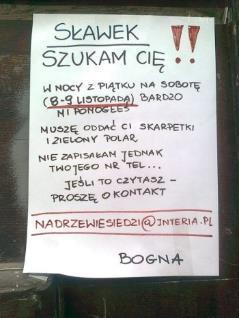 SŁAWEK
SZUKAM CIĘ !!
W NOCY Z PIĄTKU NA SOBOTĘ
(8-9 LISTOPADA) BARDZO
MI POMOGŁEŚ
MUSZĘ ODDAĆ CI SKARPETKI
I ZIELONY POLAR
NIE ZAPISAŁAM JEDNAK
TWOJEGO NR TEL...
JEŚLI TO CZYTASZ -
PROSZĘ O KONTAKT
NADRZEWIESIEDZI@INTERIA.PL
BOGNA